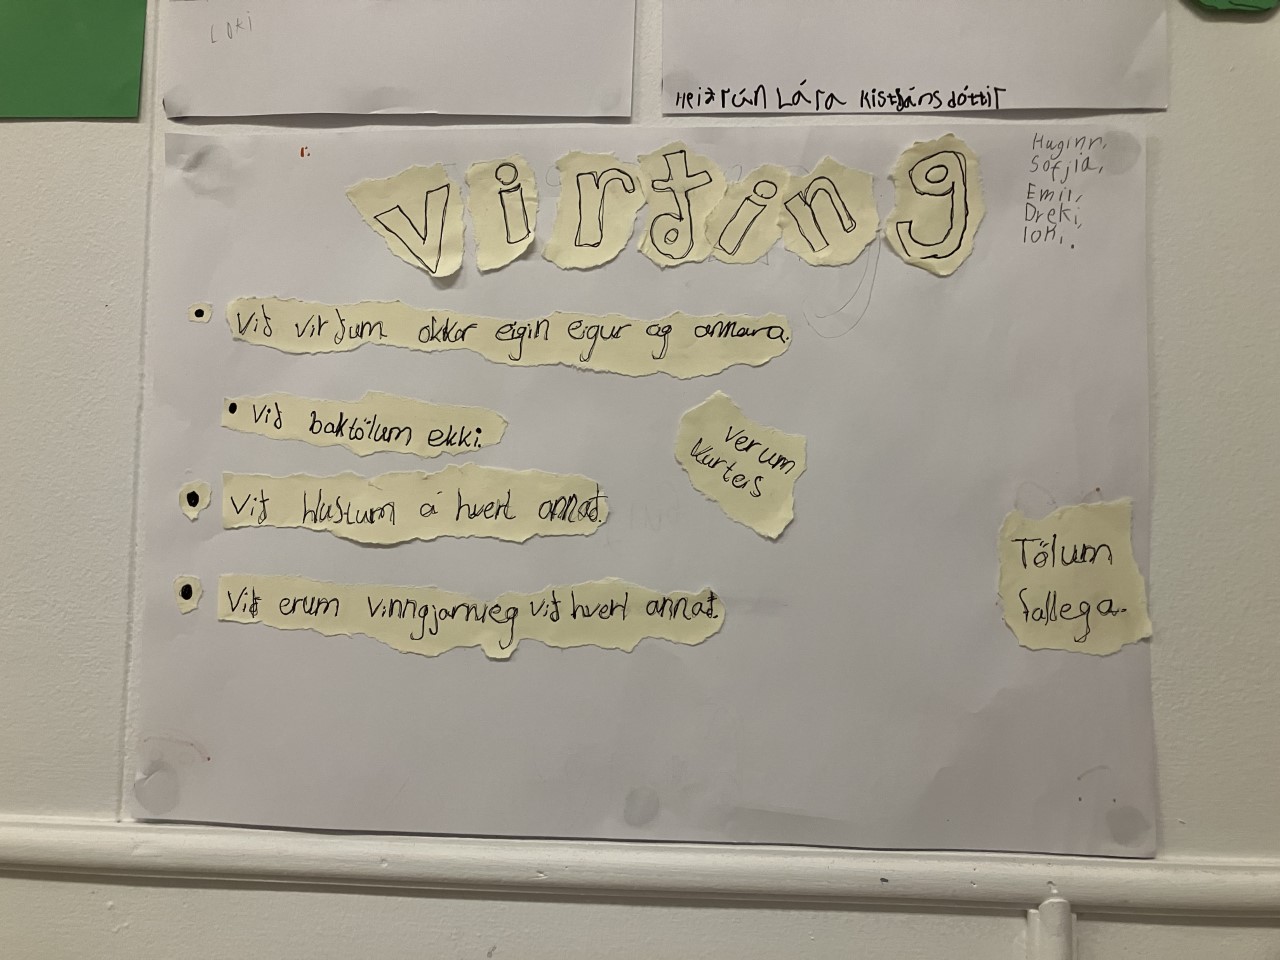 Loki
Heiðrún Lára Kistjánsdóttir
virðing
Huginn,
Sofjia,
Emil,
Dreki,
loki.
• Við virðum okkar eigin eigur og annara.
• við baktölum ekki.
• Við hlustum á hvert annað.
• Við erum vinngjarnleg við hvert annað.
Verum
kurteis
Tölum
fallega.